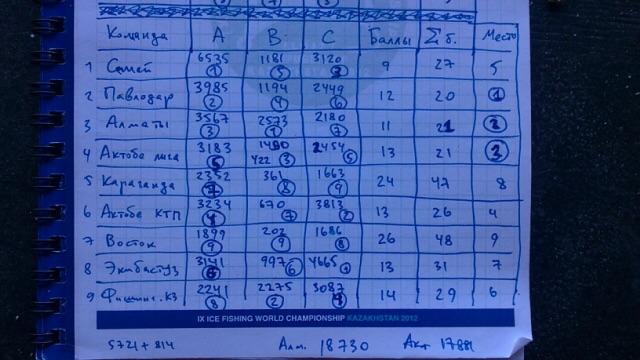 Команда A B C Баллы Σб. Место
1 Семей 6535 ① 1181 ⑤ 3120 ③ 9 27 5
2 Павлодар 3985 ② 1194 ④ 2449 ⑥ 12 20 ①
3 Алматы 3567 ③ 2573 ① 2180 ⑦ 11 21 ②
4 Актобе лига 3183 ⑤ 422 ③ 2454 ⑤ 13 21 ③
5 Караганда 2352 ⑦ 361 ⑧ 1663 ⑨ 24 47 8
6 Актобе КТП 3234 ④ 670 ⑦ 3813 ② 13 26 4
7 Восток 1899 ⑨ 202 ⑨ 1686 ⑧ 26 48 9
8 Экибастуз 3141 ⑥ 997 ⑥ 4665 ① 13 31 7
9 Фишинг.КЗ 2241 ⑧ 2275 ② 3087 ④ 14 29 6
IX ICE FISHING WORLD CHAMPIONSHIP KAZAKHSTAN 2012
5721 + 814 Алм. 18730 Акт 17881